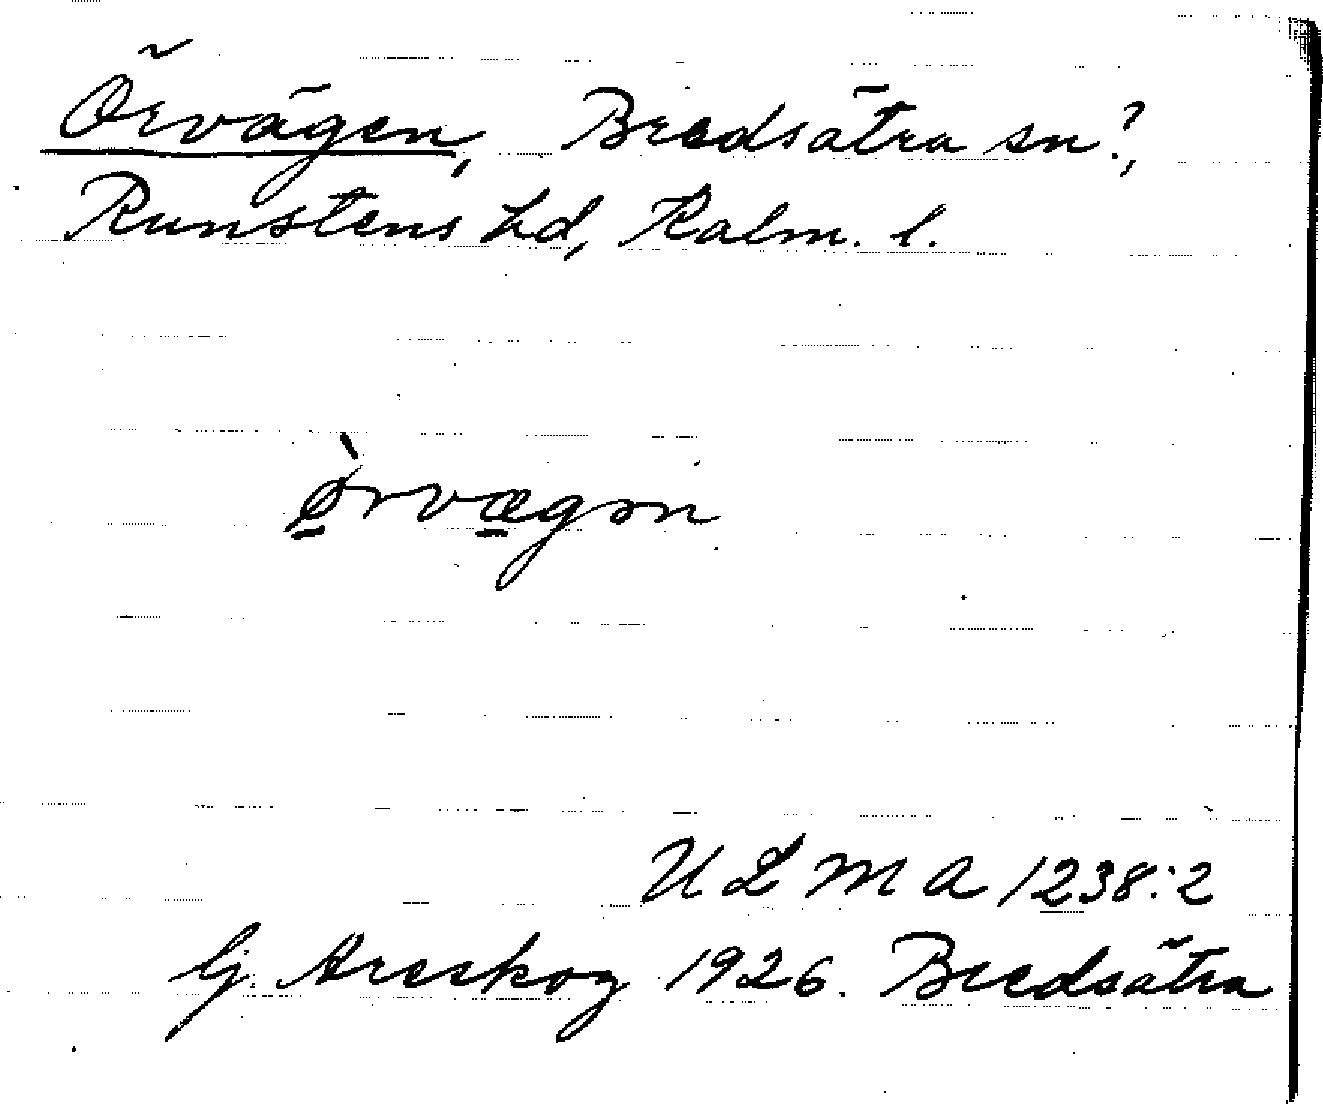 Örvägen, Bredsätra sn?,
Runstens hd, Kalm. l.
ø̲̀rvæ̲gən
ULMA 1238:2
G. Areskog 1926. Bredsätra